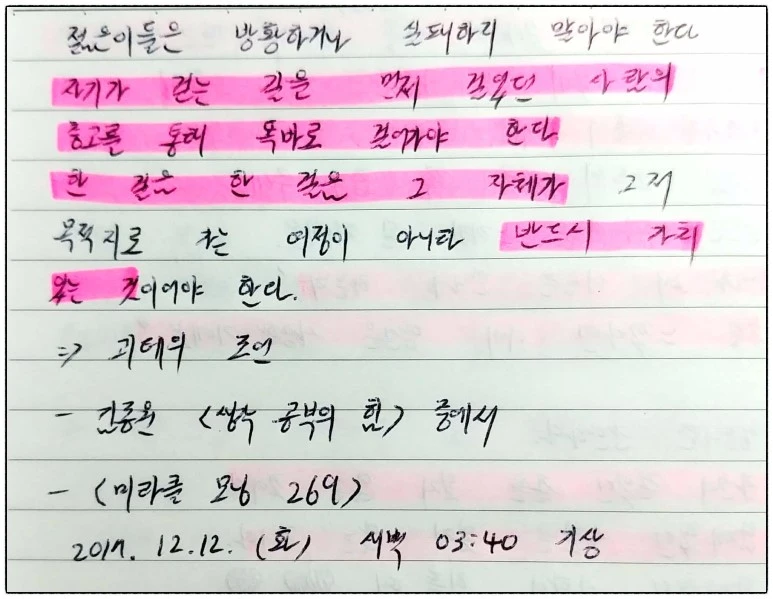 젊은이들은 방황하거나 실패하리 말아야 한다
자기가 걷는 길을 먼저 걸었던 사람의
충고를 통해 똑바로 걸어가야 한다
한 걸음 한 걸음은 그 자체가 그저
목적지로 가는 여정이 아니라 반드시 가치
있는 것이어야 한다.
=> 괴테의 조언
- 김종원 <생각 공부의 힘> 중에서
- <미라클 모닝 269>
2017. 12.12. (화) 새벽 03:40 기상